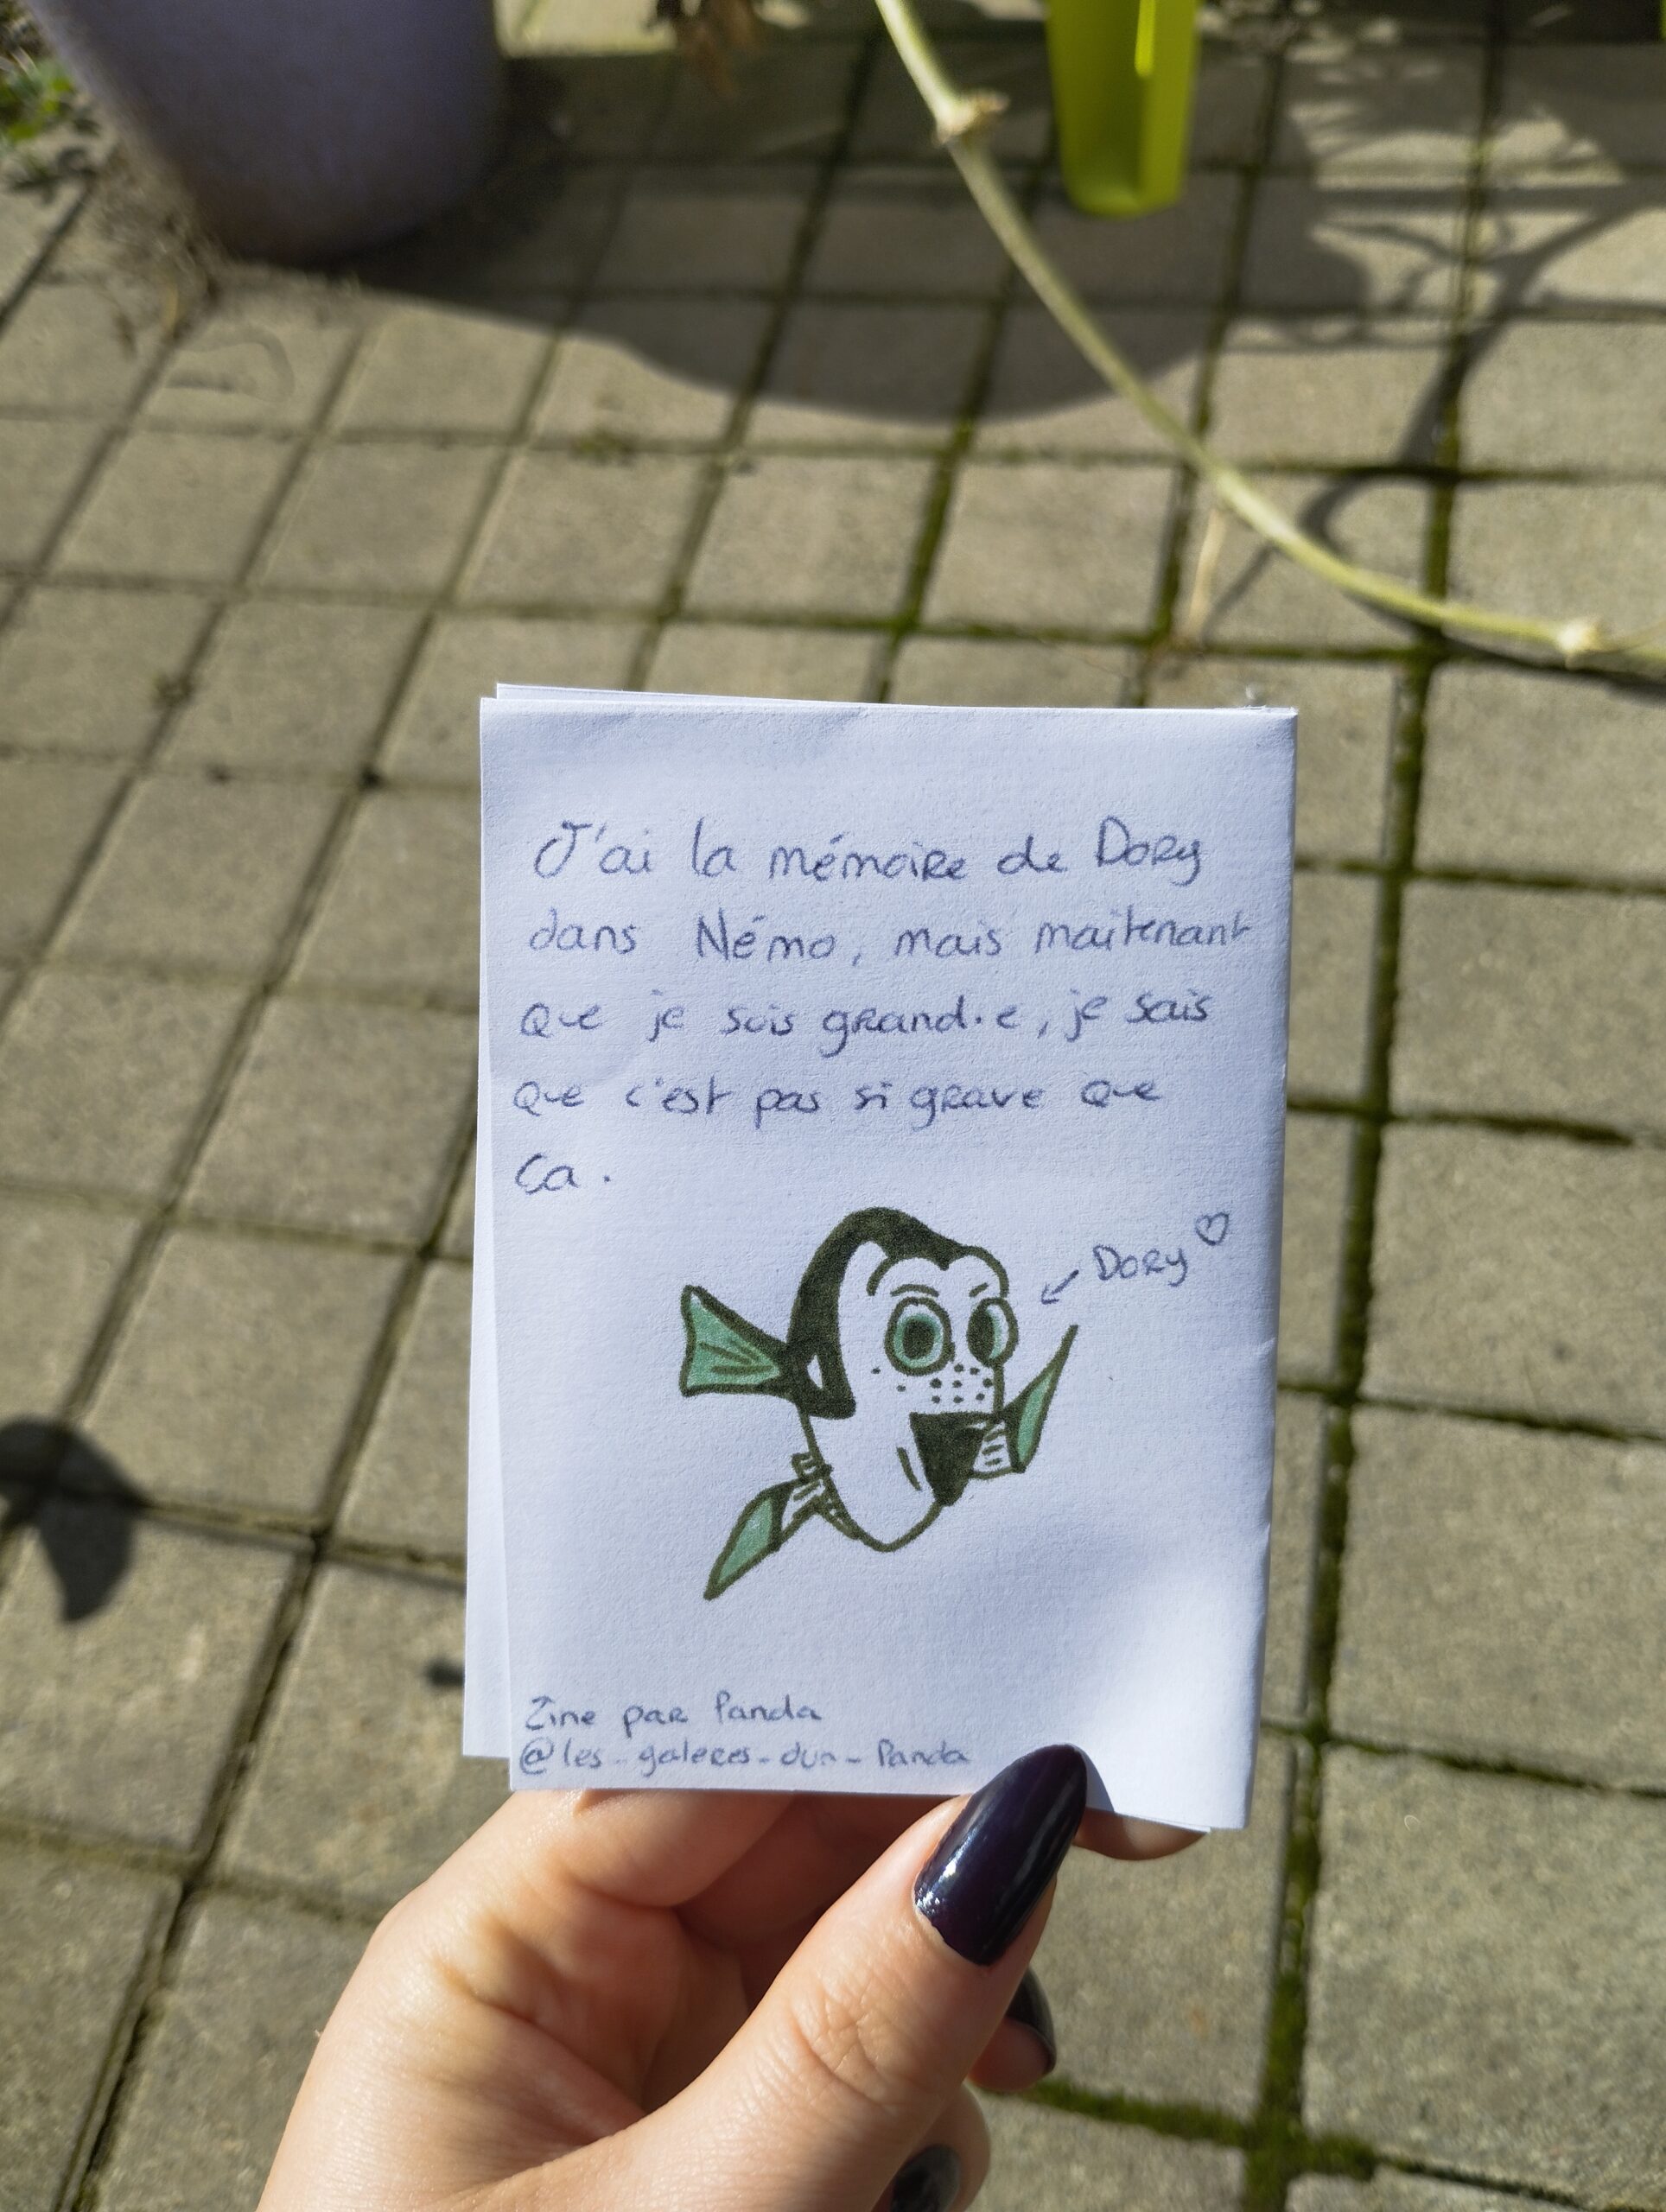 J'ai la mémoire de Dory
dans Némo, mais maitenant
que je suis grand·e, je sais
que c'est pas si grave que
ça.
Dory
Zine par Panda
@les_galeres_dun_Panda